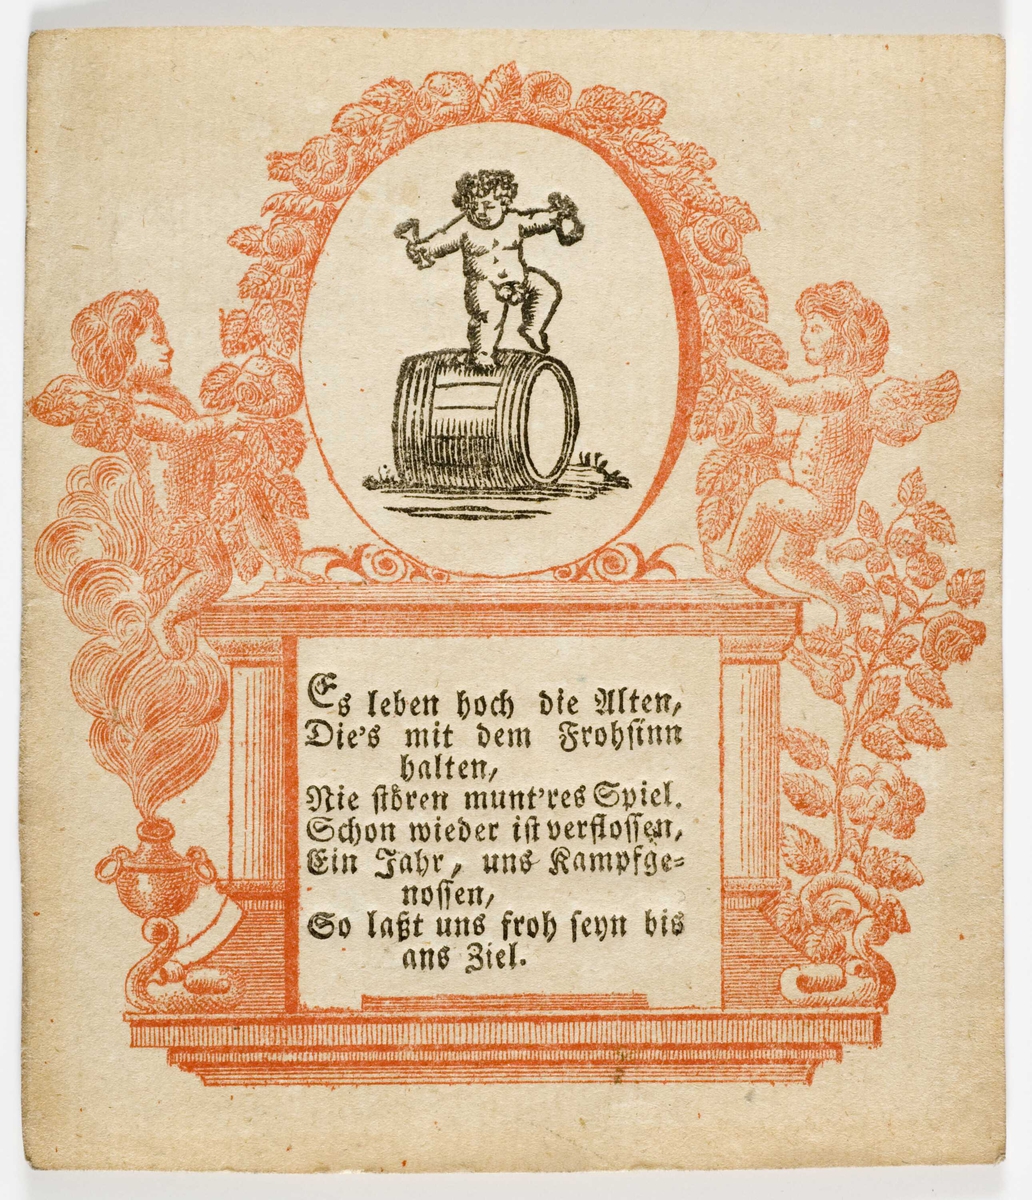 Es leben hoch die Alten,
Die's mit dem Frohsinn
halten,
Nie stören munt'res Spiel.
Schon wieder ist verflossen,
Ein Jahr, uns Kampfge=
nossen,
So laßt uns froh seyn bis
ans Ziel.